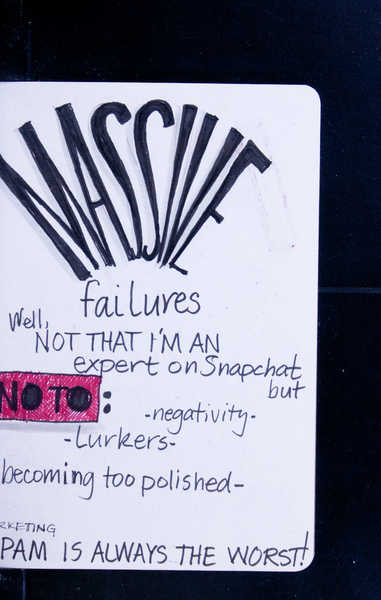 MASSIVE
failures
Well,
NOT THAT I'M AN
expert on Snapchat
but
NO TO:
-negativity-
-Lurkers-
becoming too polished-
RKETING
PAM IS ALWAYS THE WORST!